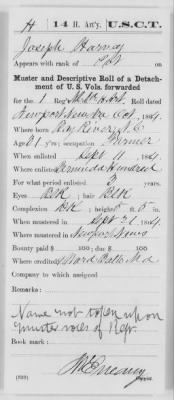 H 14 H. Art'y. U.S.C.T.
Joseph Harvey
Appears with rank of Pvt
Muster and Descriptive Roll of a Detachment
of U. S. Vols. forwarded
for the Reg't Roll dated
Newport News Va Oct , 1864.
Where born Hay River, N.C.
Age 21 y'rs; occupation Farmer
When enlisted Sept 11 , 1864.
Where enlisted Bermuda Hundred
For what period enlisted 3 years.
Eyes Blk ; hair Blk
Complexion Blk ; height 5 ft. 5 in.
When mustered in Sept 30 , 1864.
Where mustered in Newport News
Bounty paid $ 100 ; due $ 100
Where credited Ward Balto Md
Company to which assigned
Remarks:
Name not taken up on
muster rolls of Reg.
Book mark:
(339) Copyist.